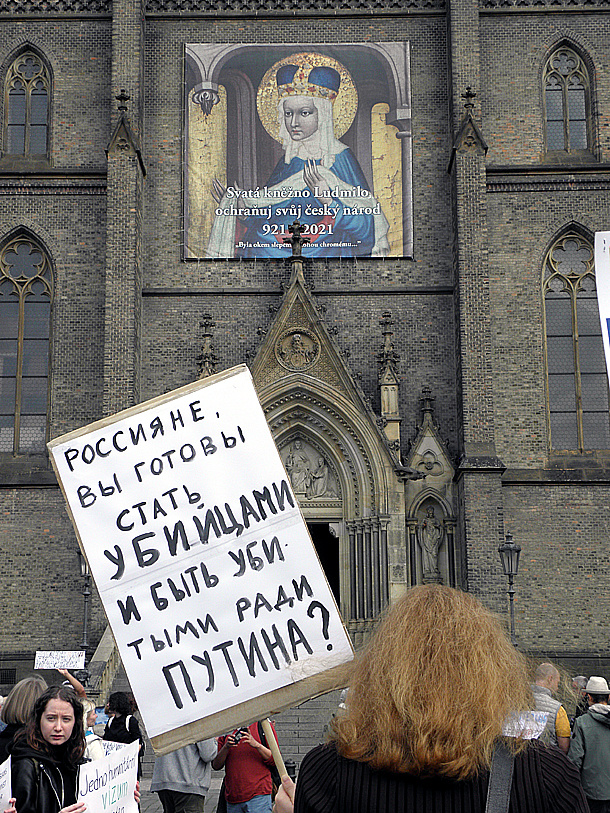 Svatá kněžno Ludmilo,
ochraňuj svůj český národ
921 2021
„Byla okem slepému, nohou chromému..."
РОССИЯНЕ,
ВЫ ГОТОВЫ
СТАТЬ
УБИЙЦАМИ
И БЫТЬ УБИ-
ТЫМИ РАДИ
ПУТИНА?
Jedno humanitní
VÍZUM